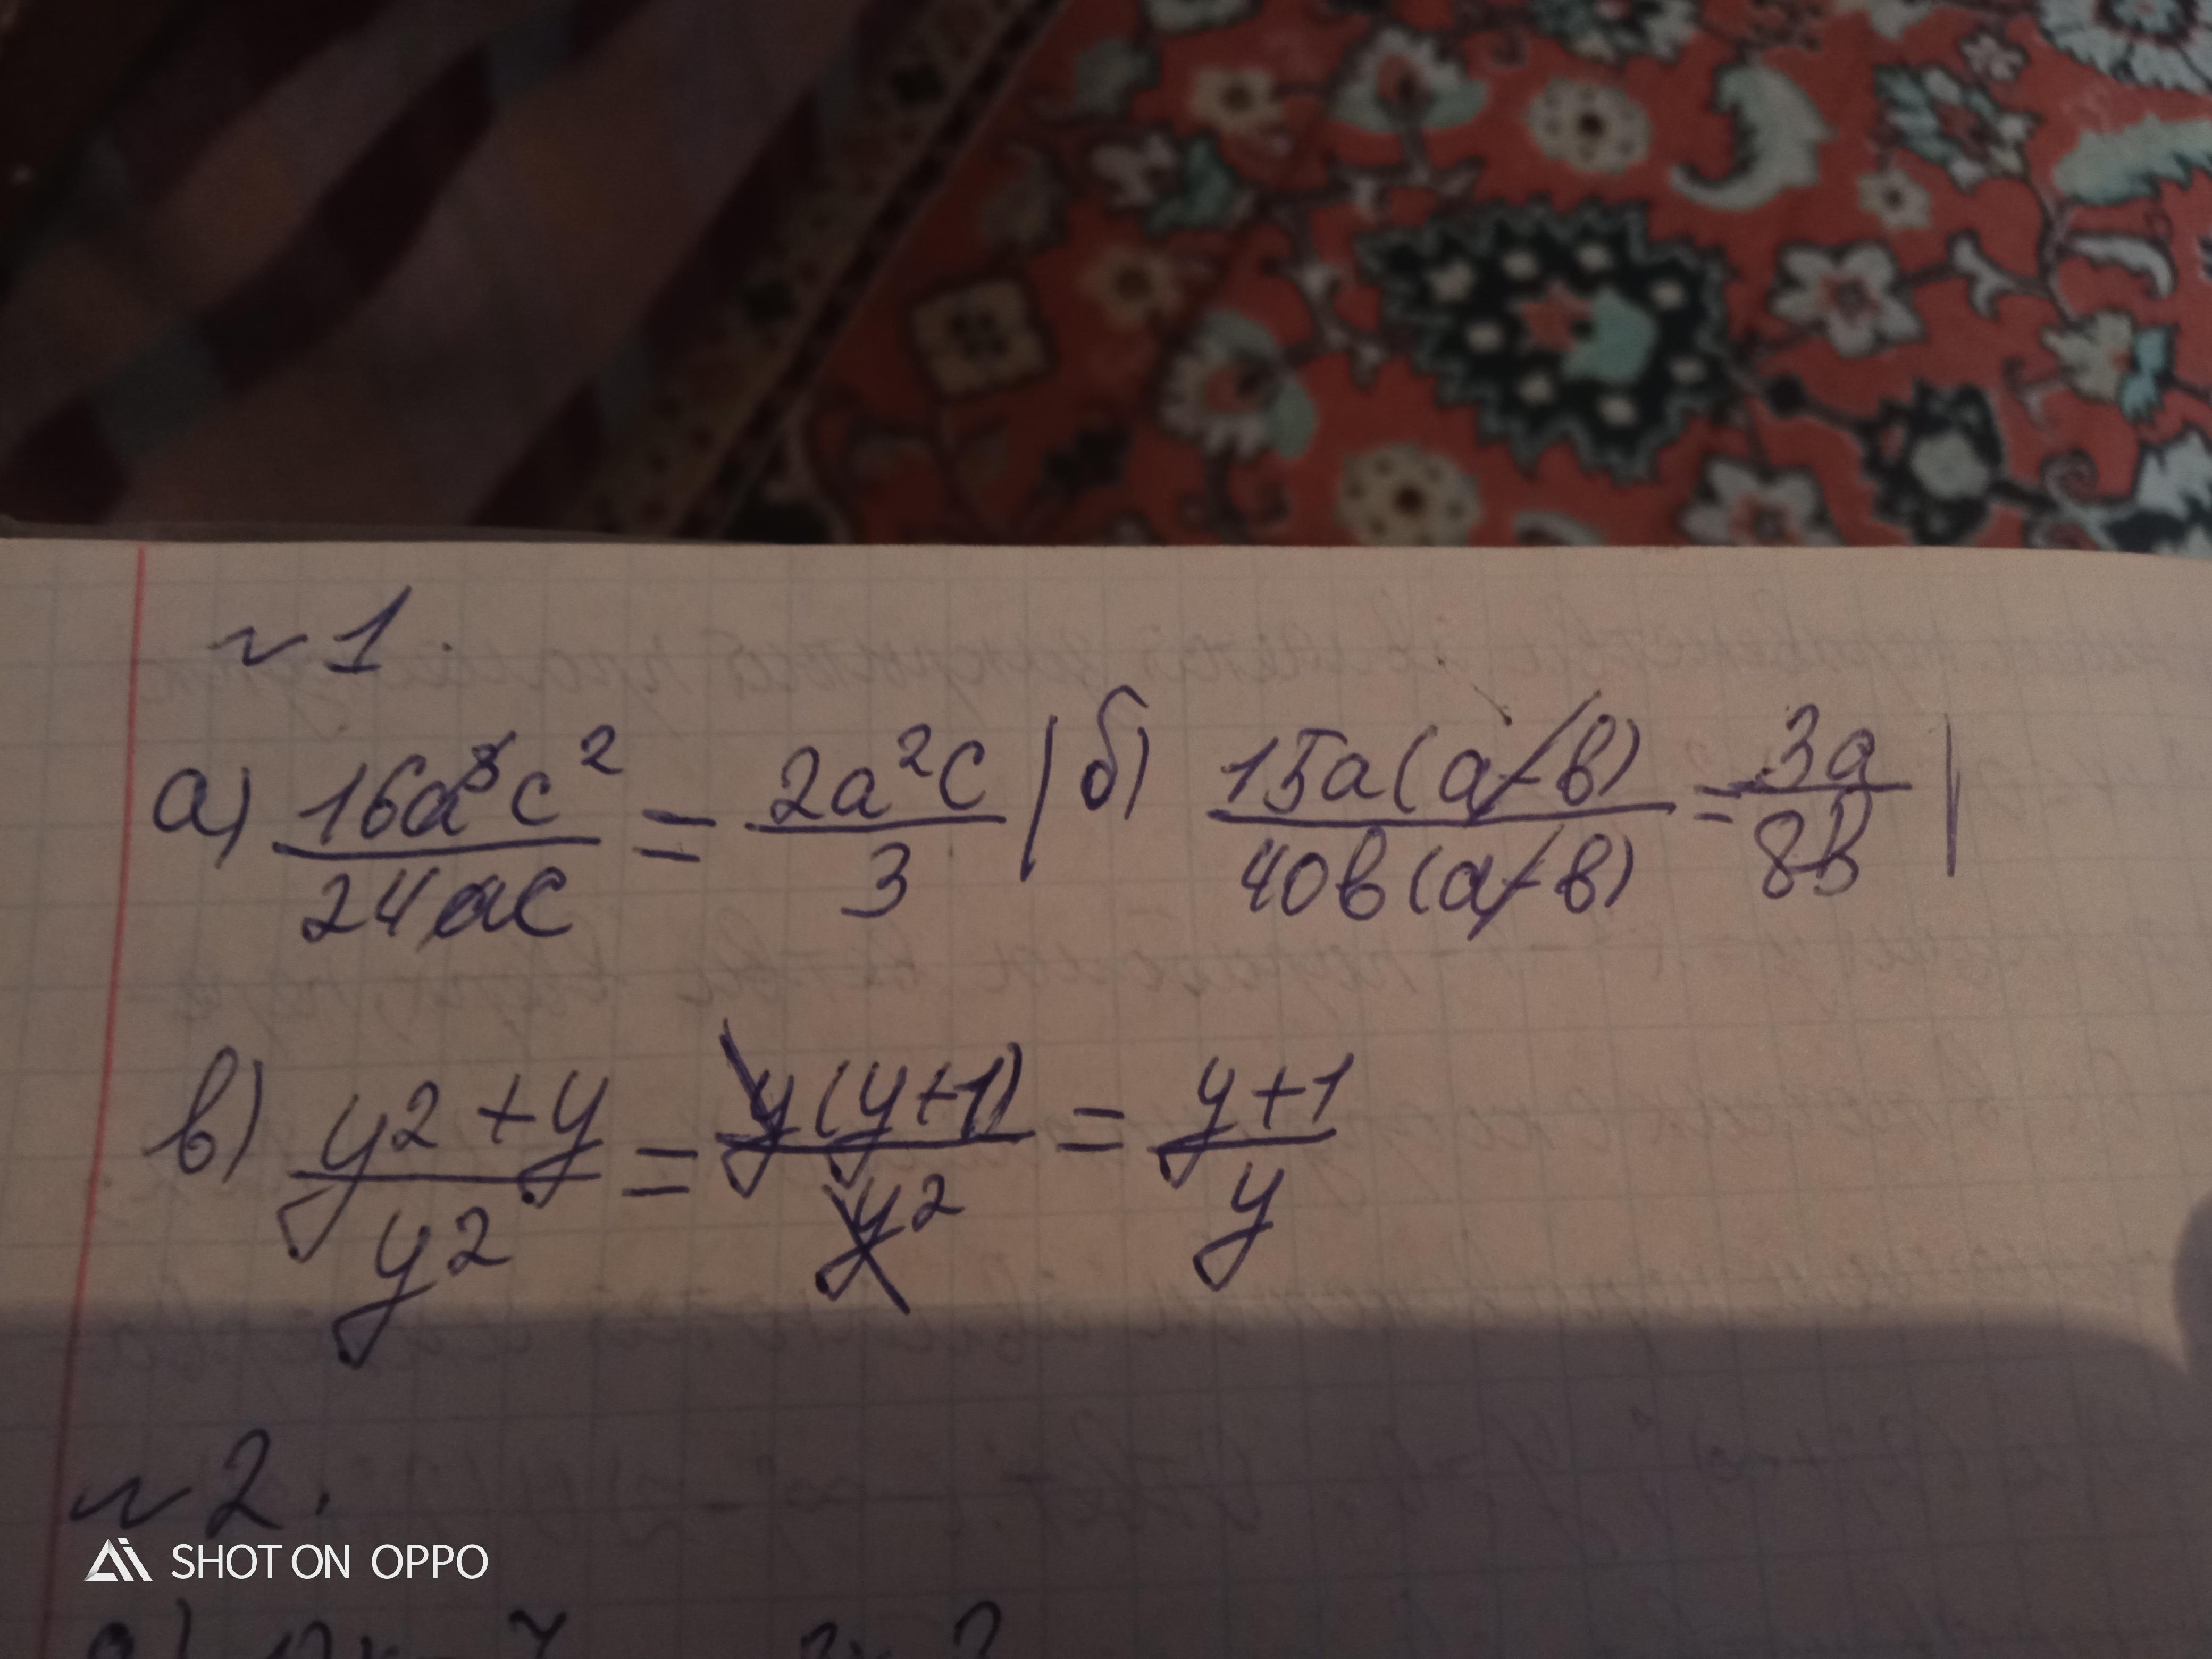 №1.
а) 16a³c²/24ac = 2a²c/3 | б) 15a(a-b)/40b(a-b) = 3a/8b |
в) y2+y/y2 = y(y+1)/y2 = y+1/y
№2.
SHOT ON OPPO